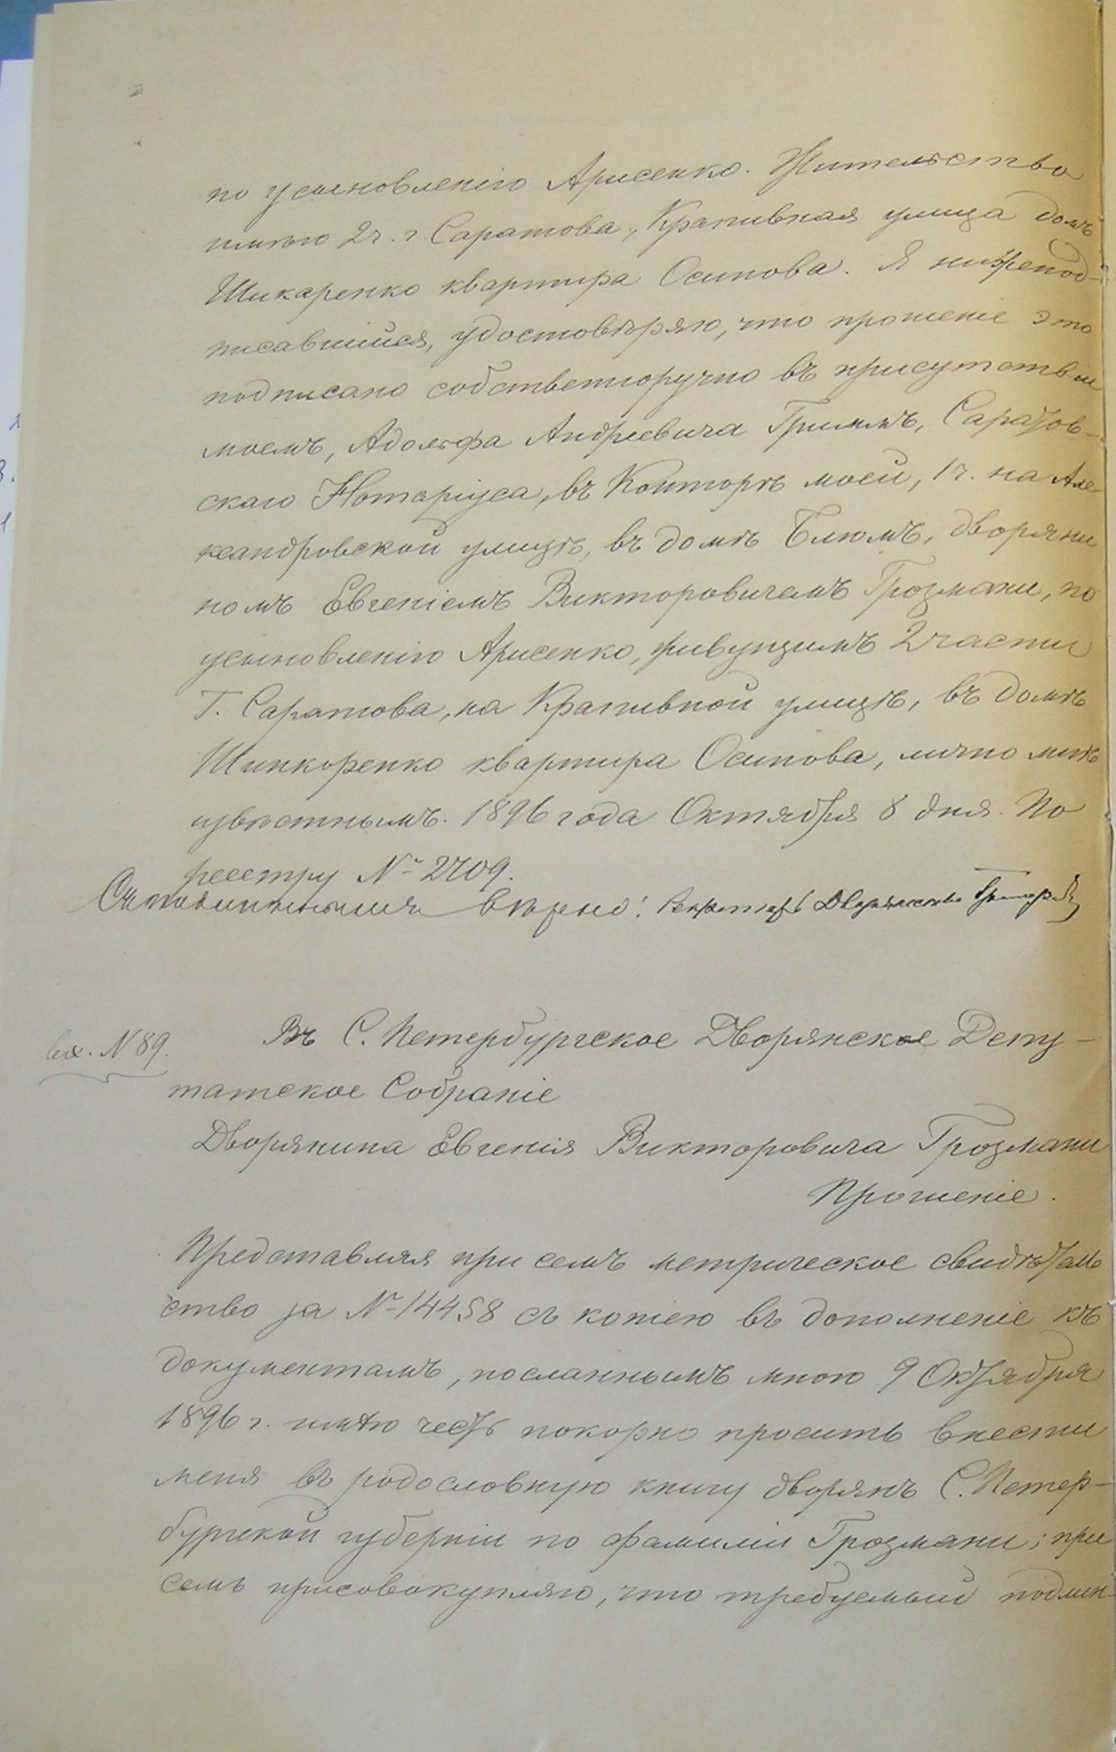 по усыновленію Арисенко. Жительство
имѣю 2ч. г Саратова, Крапивная улица домъ
Шикаренко квартира Осипова. Я нижепод-
писавшійся, удостовѣряю, что прошеніе это
подписано собственноручно въ присутствіи
моемъ, Адольфа Андреевича Гриммъ, Саратов-
скаго Нотаріуса, въ Конторѣ моей, 1ч. на Але-
ксандровской улицѣ, въ домѣ Блюмъ, дворяни
номъ Евгеніемъ Викторовичемъ Грозмани, по
усыновленію Арисенко, живущимъ 2 части
Г. Саратова, на Крапивной улицѣ, въ домѣ
Шикоренко квартира Осипова, лично мнѣ
извѣстнымъ. 1896 года Октября 8 дня. По
реестру № 2709.
Съ подлиннымъ вѣрно: Секретарь Дворянства
вх. N 89.
Въ С. Петербургское Дворянское Депу-
татское Собраніе
Дворянина Евгенія Викторовича Грозмани
Прошеніе.
Представляя при семъ метрическое свидѣтель
ство за № 14458 съ копіею въ дополненіе къ
документамъ, посланнымъ мною 9 Октября
1896 г. имѣю честь покорно просить внести
меня въ родословную книгу дворянъ С. Петер-
бургской губерніи по фамиліи Грозмани; при
семъ присовокупляю, что требуемый подлин-